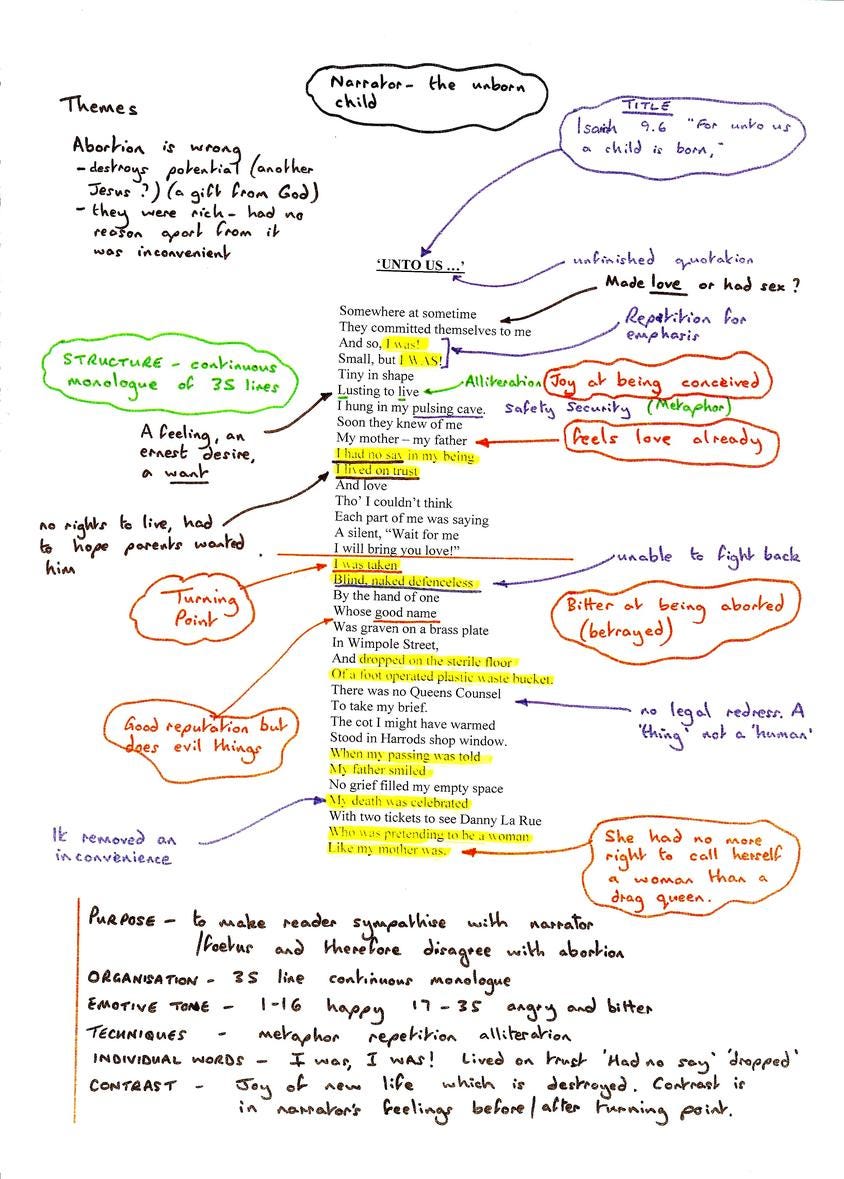 Narrator - the unborn
child
Themes
TITLE
Isaiah 9.6 "For unto us
a child is born,"
Abortion is wrong
- destroys potential (another
Jesus?) (a gift from God)
- they were rich - had no
reason apart from it
was inconvenient
'UNTO US …'
unfinished quotation
Made love or had sex?
Somewhere at sometime
They committed themselves to me
And so, I was!
Small, but I WAS!
Tiny in shape
Lusting to live
I hung in my pulsing cave.
Soon they knew of me
My mother – my father
I had no say in my being
I lived on trust
And love
Tho' I couldn't think
Each part of me was saying
A silent, "Wait for me
I will bring you love!"
I was taken
Blind, naked defenceless
By the hand of one
Whose good name
Was graven on a brass plate
In Wimpole Street,
And dropped on the sterile floor
Of a foot operated plastic waste bucket.
There was no Queens Counsel
To take my brief.
The cot I might have warmed
Stood in Harrods shop window.
When my passing was told
My father smiled.
No grief filled my empty space
My death was celebrated
With two tickets to see Danny La Rue
Who was pretending to be a woman
Like my mother was.
Repetition for
emphasis
STRUCTURE - continuous
monologue of 35 lines
Alliteration
Joy at being conceived
safety security (Metaphor)
A feeling, an
ernest desire,
a want
feels love already
no rights to live, had
to hope parents wanted
him
unable to fight back
Turning
Point
Bitter at being aborted
(betrayed)
Good reputation but
does evil things
no legal redress. A
'thing' not a 'human'
It removed an
inconvenience
She had no more
right to call herself
a woman than a
drag queen.
PURPOSE - to make reader sympathise with narrator
/foetus and therefore disagree with abortion
ORGANISATION - 35 line continuous monologue
EMOTIVE TONE - 1-16 happy 17-35 angry and bitter
TECHNIQUES - metaphor repetition alliteration
INDIVIDUAL WORDS - I was, I WAS! Lived on trust 'Had no say' 'dropped'
CONTRAST - Joy of new life which is destroyed. Contrast is
in narrator's feelings before/after turning point.